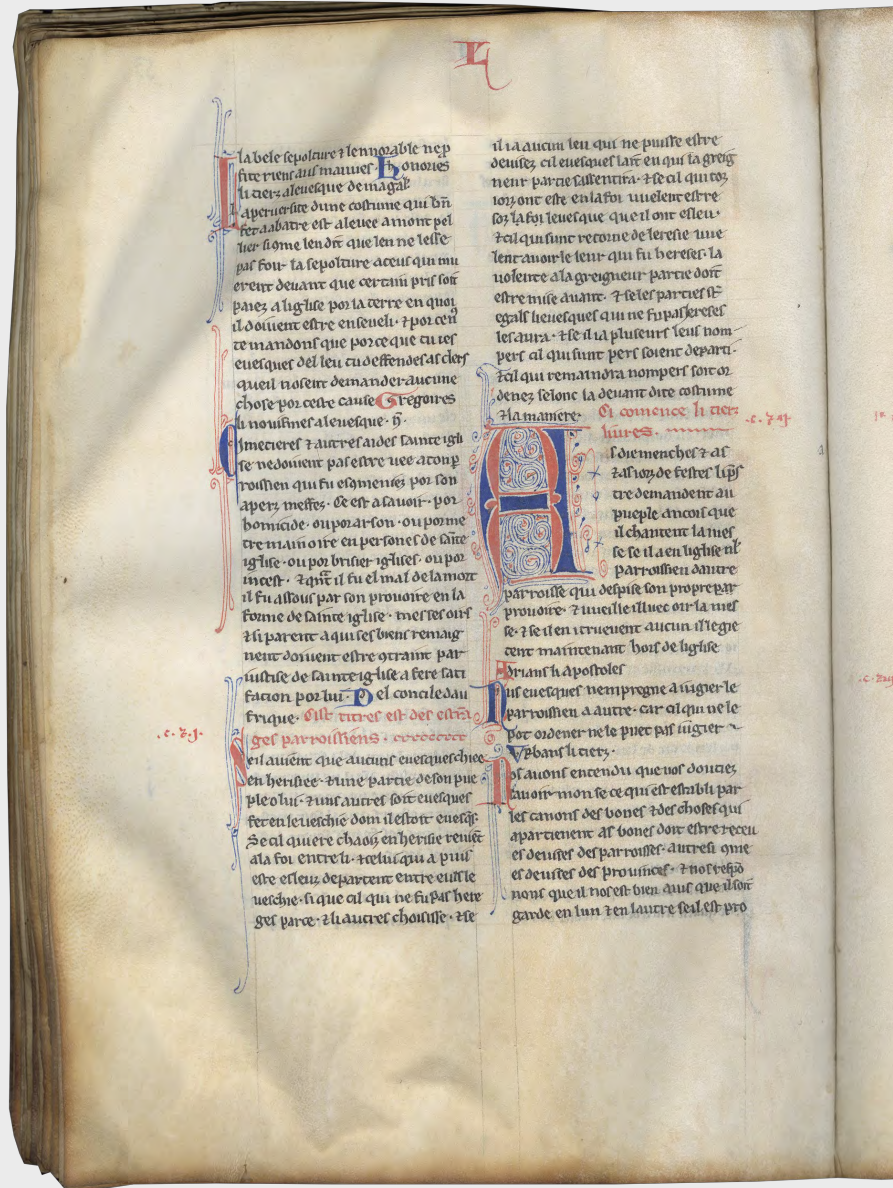 L
la bele sepolture ⁊ lennorable ne ꝓ
fite riens aus mauues. Honories
li tierz a leuesque de magal'.
La peruersite dune costume qui bñ
fet a abatre est aleuee a mont pel
lier si ꝯme len dit que len ne lesse
pas fouir la sepolture a ceus qui mu
erent deuant que certain pris soit
paiez a liglise por la terre en quoi
il doiuent estre enseueli. ⁊ por cen
te mandons que por ce que tu ies
euesques del leu tu deffendes as clers
queil nosent demander aucune
chose por ceste cause Gregoires
li nouismes a leuesque. ñ.
Cimetieres ⁊ autres aides sainte igli
se ne doiuent pas estre uee a ton ꝑ
roissien qui fu esqmeniez por son
apert meffez. Ce est a sauoir. por
homicide. ou por arson. ou por me
tre main oire en persones de saīte
iglise. ou por brisier iglises. ou por
incest. ⁊ qm̄t il fu el mal de la mort
il fu assous par son prouoire en la
forme de sainte iglise. mes ses oirs
⁊ si parent a qui ses biens remaig
nent doiuent estre ꝯtraint par
iustise de sainte iglise a fere sati
facion por lui. Del concile dau
frique. Cist titres est des estrā
ges parroissiens.
.c. 7. j.
Se il auient que aucuns euesques chiee
en herisiee. ⁊ une partie de son pue
ple o lui. ⁊ uns autres soit euesques
fet en leueschie dom il estoit euesqs.
Se cil quiere chaoiz en herisie reuiēt
a la foi entre li. ⁊ celui qui a puis
este esleuz departent entre eus le
ueschie. si que cil qui ne fu pas here
ges parce. ⁊ li autres choisisse. ⁊ se
il i a aucun leu qui ne puisse estre
deuisez cil euesques lait en qui la greig
neur partie sassentira. ⁊ se cil qui toz
iorz ont este en la foi uuelent estre
soz la foi leuesque que il ont esleu.
⁊ cil qui sunt retorne de leresie uue
lent auoir le leur qui fu hereses. la
uolente a la greigneur partie doit
estre mise auant. ⁊ se les parties sūt
egals li euesques qui ne fu pas hereses
les aura. ⁊ se il i a pluseurs leus nom
pers cil qui sunt pers soient departi.
⁊ cil qui remaindra nompers soit or
denez selonc la deuant dite costume
⁊ la maniere. Ci comence li tierz
liures.
.c. 7. ij
As diemenches ⁊ as
⁊ as iorz de festes li ps
tre demandent au
pueple ancois que
il chantent la mes
se se il a en liglise nl'
parroissien dautre
parroisse qui despise son propre par
prouoire. ⁊ uueille illuec oir la mes
se. ⁊ se il en i trueuent aucun il le gie
tent maintenant hors de liglise
Adrians li apostoles
Nus euesques nempregne a iugier le
parroissien a autre. car cil qui ne le
pot ordener ne le puet pas iugier
Vrbans li tierz.
Nos auons entendu que uos doutiez
sauoir mon se ce qui est establi par
les canons des bones ⁊ des choses qui
apartienent as bones doit estre receu
es deuises des parroisses. autresi ꝯme
es deuises des prouinces. ⁊ nos respō
nons que il nos est bien auis que il soit
garde en lun ⁊ en lautre se il est pro